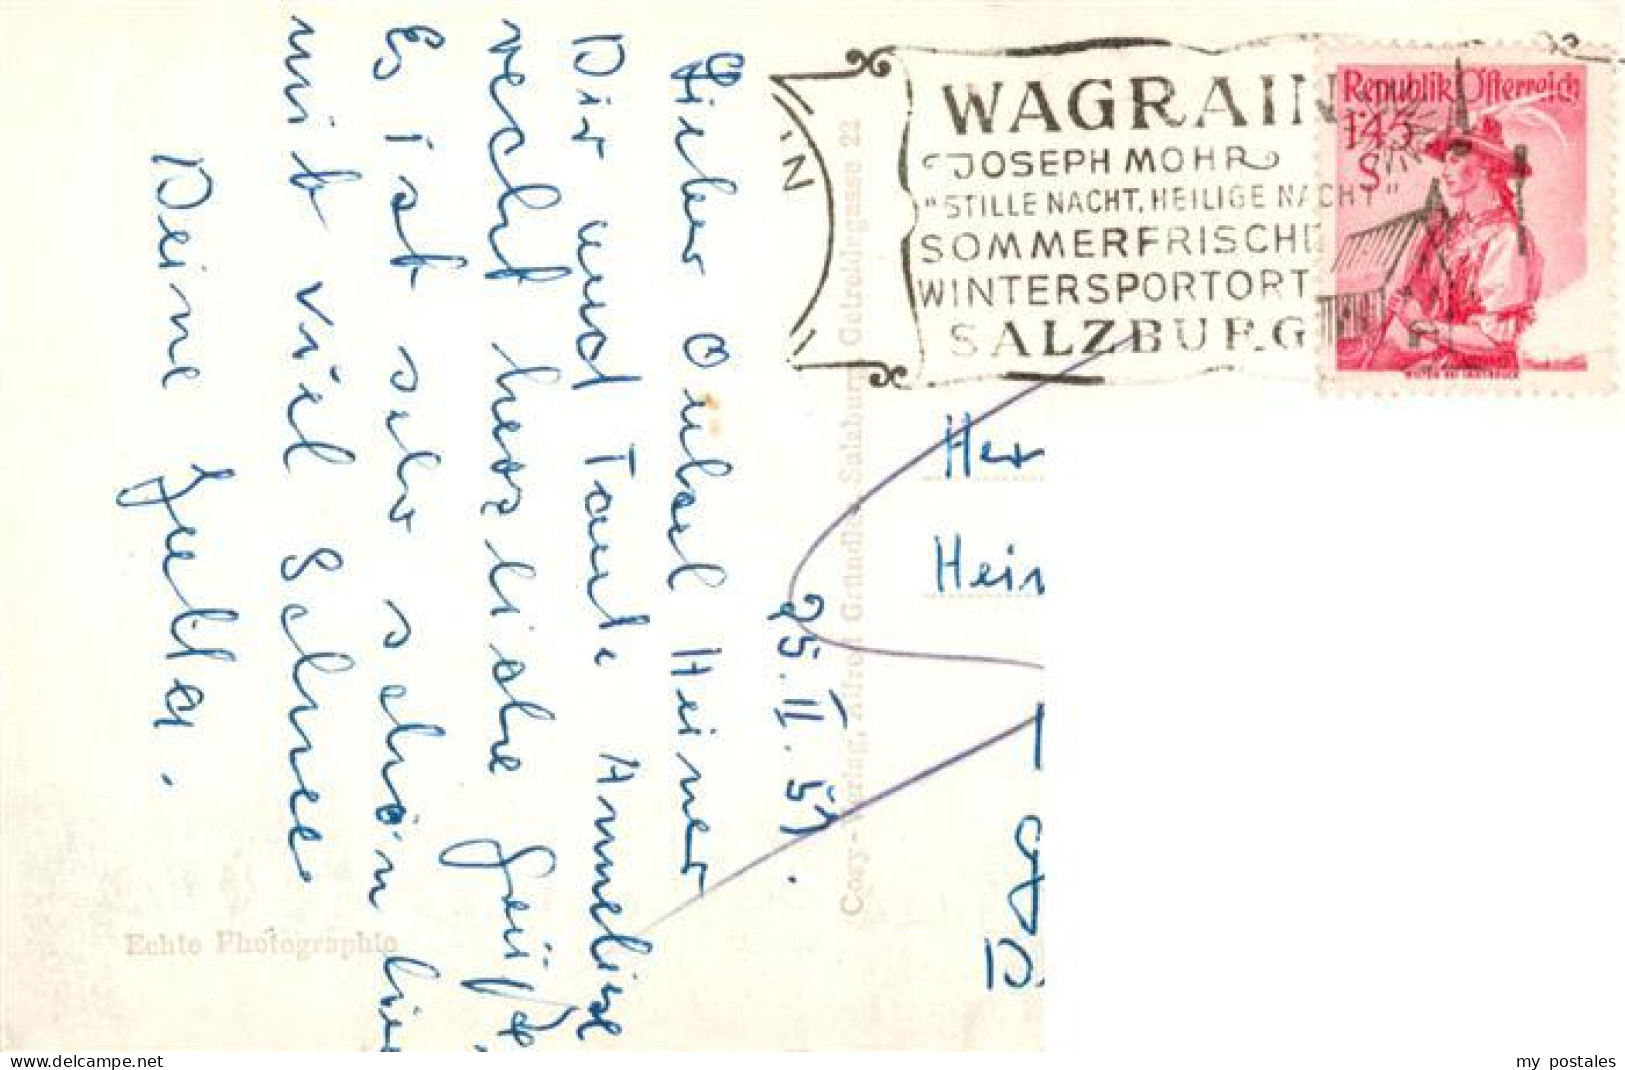 25. II. 51.
Lieber Onkel Heiner
Dir und Tante Anneliese
recht herzliche Grüße.
Es ist sehr schön hie
mit viel Schnee
Deine Jutta.
Echte Photographie
Cosy-Verlag, Alfred Gründler, Salzburg, Getreidegasse 22
WAGRAIN
JOSEPH MOHR
"STILLE NACHT, HEILIGE NACHT"
SOMMERFRISCHE
WINTERSPORTORT
SALZBURG
Republik Österreich
1.45
S
Her
Hein
my postales
www.delcampe.net